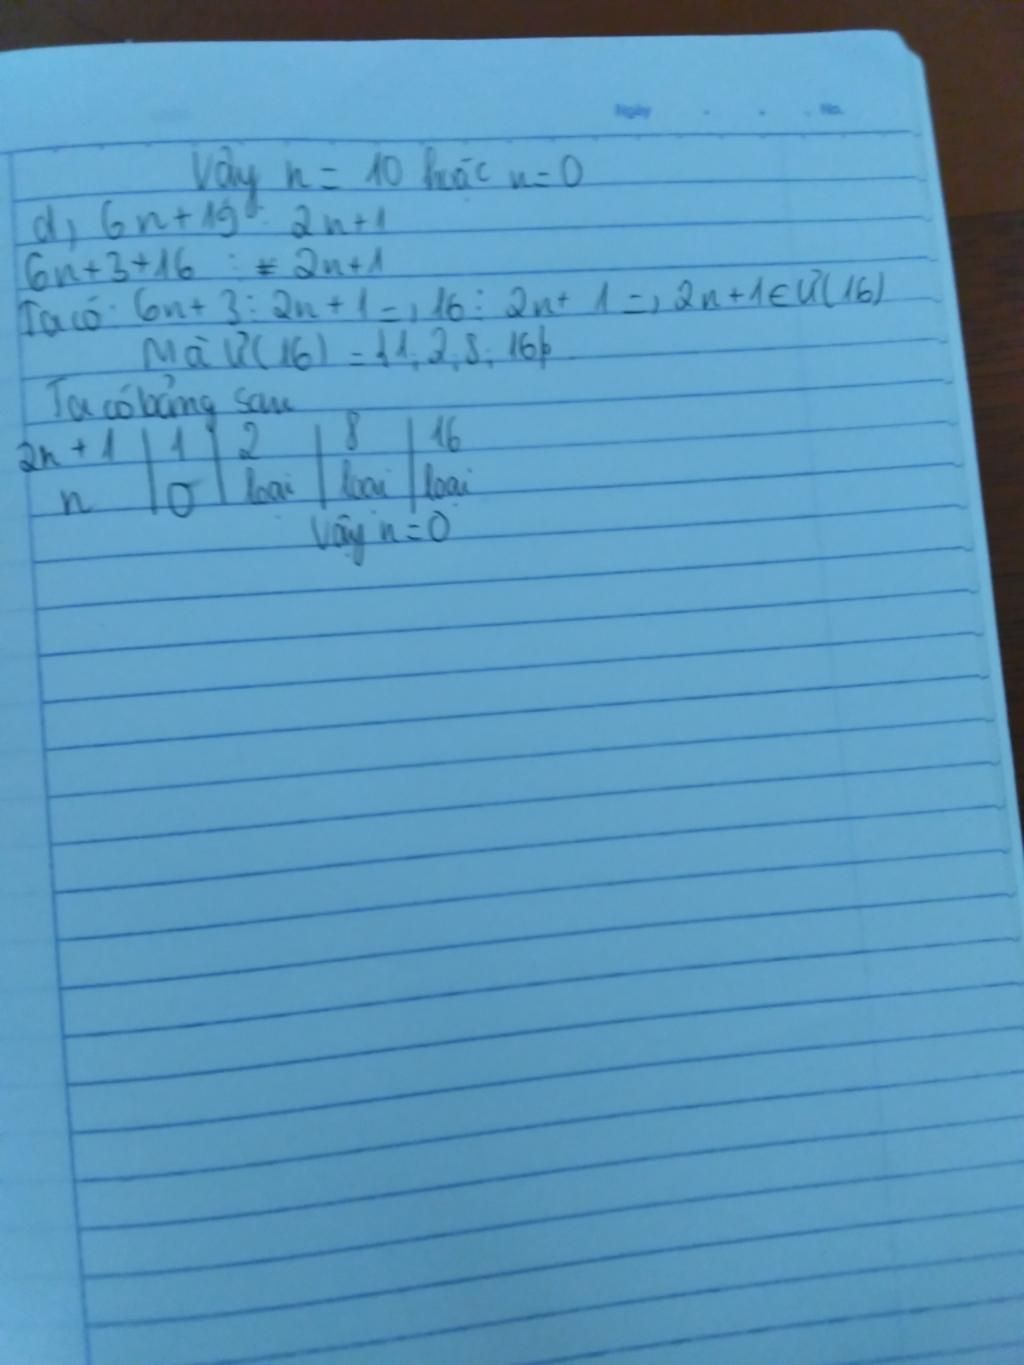 Ngày . . . No.
Vậy n = 10 hoặc n=0
d, 6n+19 ⋮ 2n+1
6n+3+16 ⋮ 2n+1
Ta có: 6n+3 ⋮ 2n+1 =, 16 ⋮ 2n+1 =, 2n+1 ∈ Ư(16)
Mà Ư(16) = {1; 2; 8; 16}.
Ta có bảng sau
2n+1 | 1 | 2 | 8 | 16
n | 0 | loại | loại | loại
Vậy n=0